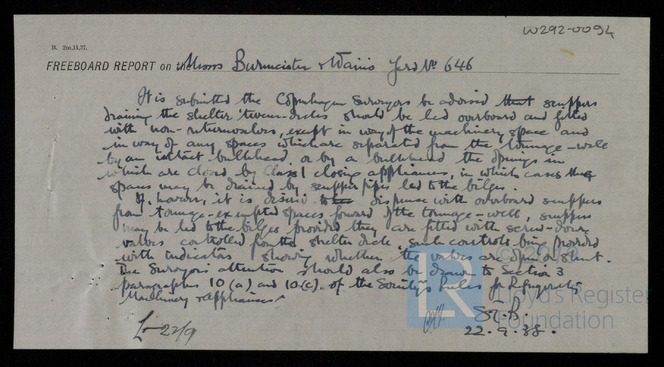 W292-0094
B. 2m,11,37.
FREEBOARD REPORT on the Messrs Burmeister & Wain's Yard No 646
It is submitted the Copenhagen Surveyors be advised that scuppers
draining the shelter 'tween decks should be led overboard and fitted
with non-return valves, except in way of the machinery space and
in way of any spaces which are separated from the tonnage-well
by an intact bulkhead or by a bulkhead the openings in
which are closed by Class 1 closing appliances, in which cases the
spaces may be drained by scupper pipes led to the bilges.
If, however, it is desired to dispense with overboard scuppers
from tonnage-exempted spaces forward of the tonnage-well, scuppers
may be led to the bilges provided they are fitted with screw-down
valves controlled from the shelter deck, such controls being provided
with indicators showing whether the valves are open or shut.
The Surveyors' attention should also be drawn to Section 3
paragraphs 10(a) and 10(c) of the Society's Rules for Refrigerating
Machinery & Appliances
22/9
22.9.38.
LR
Lloyd's Register
Foundation